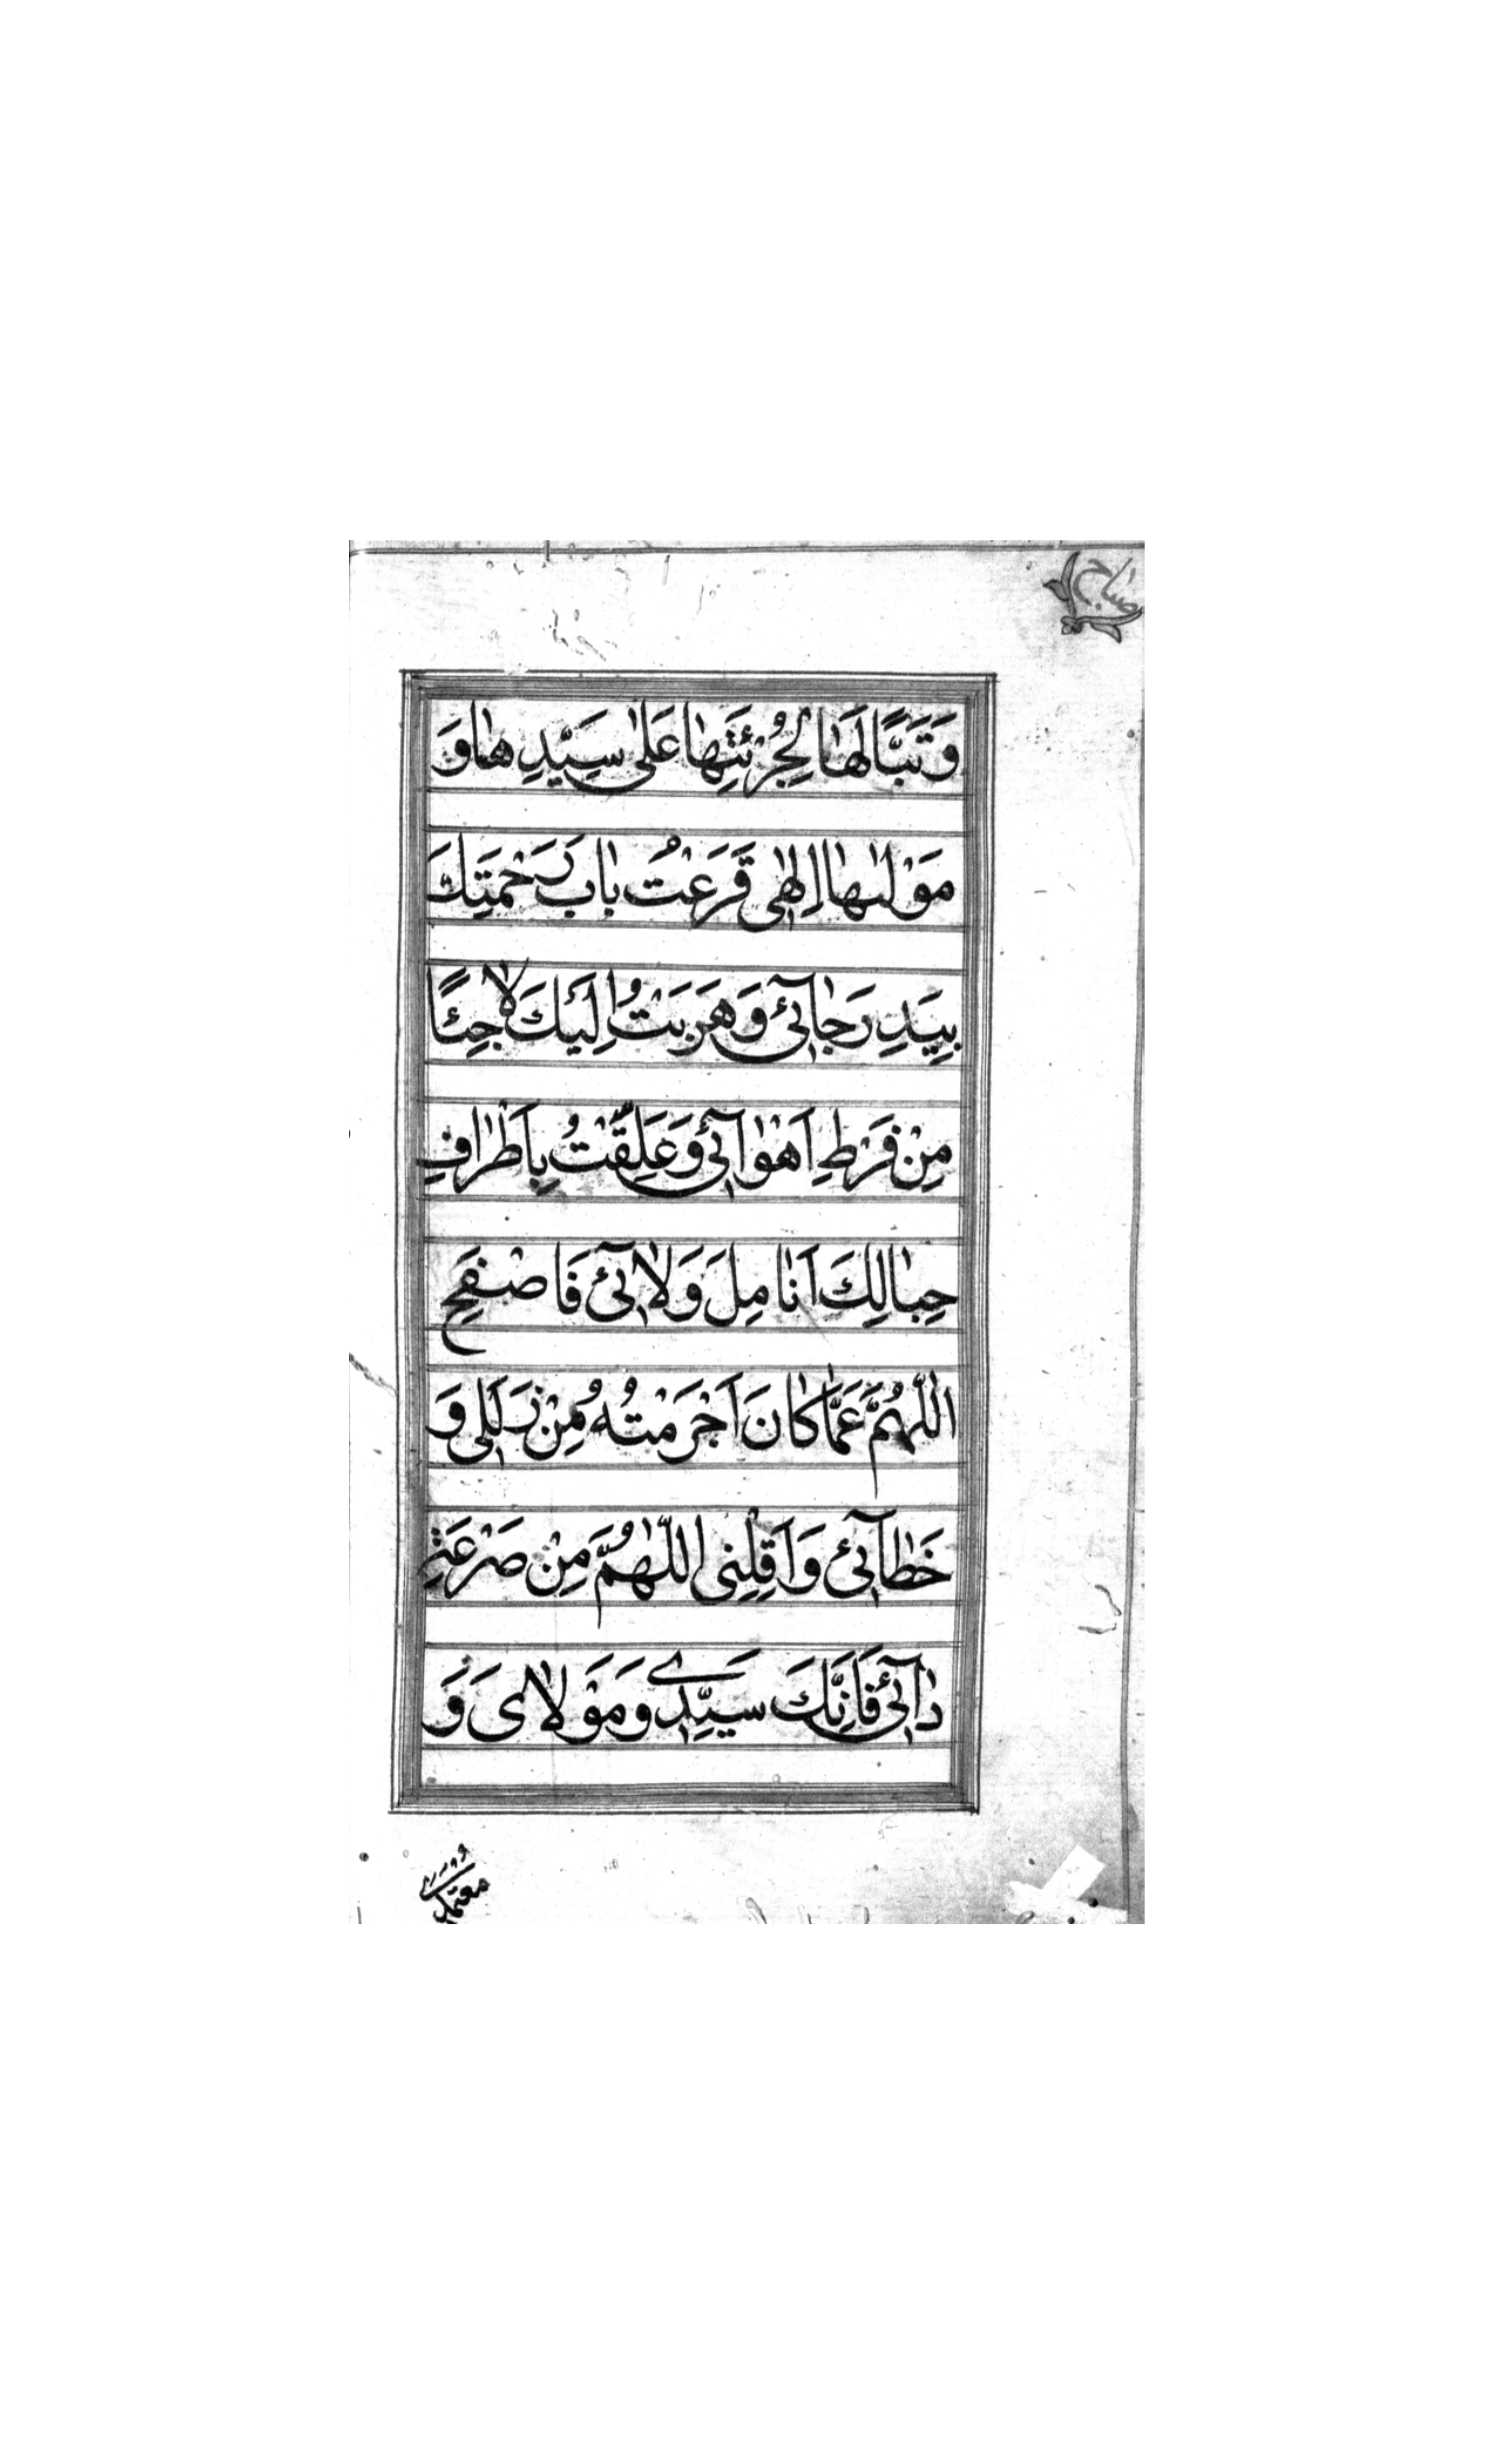 صباح
وَتَبًّا لَهَا لِجُرْئَتِهَا عَلٰى سَيِّدِهَا وَ
مَوْلٰىهَا اِلٰهِى قَرَعْتُ بَابَ رَحْمَتِكَ
بِيَدِ رَجَآئِى وَهَرَبْتُ اِلَيْكَ لَاجِئًا
مِنْ فَرْطِ اَهْوَآئِى وَعَلَّقْتُ بِاَطْرَافِ
حِبَالِكَ اَنَامِلَ وَلَآئِى فَاصْفَحِ
اللّٰهُمَّ عَمَّا كَانَ اَجْرَمْتُهُ مِنْ زَلَلِى وَ
خَطَآئِى وَاَقِلْنِى اللّٰهُمَّ مِنْ صَرْعَةِ
دَآئِى فَاِنَّكَ سَيِّدِى وَمَوْلَاىَ وَ
معتمدى و